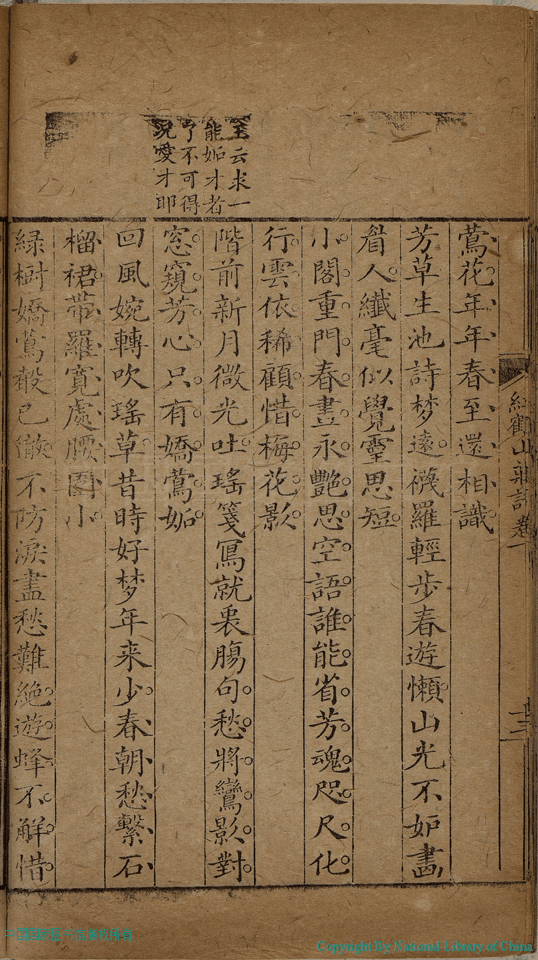 王云求一
能妬才者
了不可得
況愛才耶
鶯花年年春至還相識
芳草生池詩梦遠襪羅輕步春遊懶山光不如畵
眉人纖毫似覺靈思短
小閣重門春晝永艷思空語誰能省芳魂咫尺化
行雲依稀顧惜梅花影
階前新月微光吐瑤箋冩就裏腸句愁將鸞影對
窓窺芳心只有嬌鶯妬
回風婉轉吹瑤草昔時好梦年来少春朝愁繫石
榴裙帶羅寬處腰圍小
緑樹嬌鶯聲已微不防淚盡愁難絶遊蜂不解惜
山莊詩卷一
Copyright By National Library of China